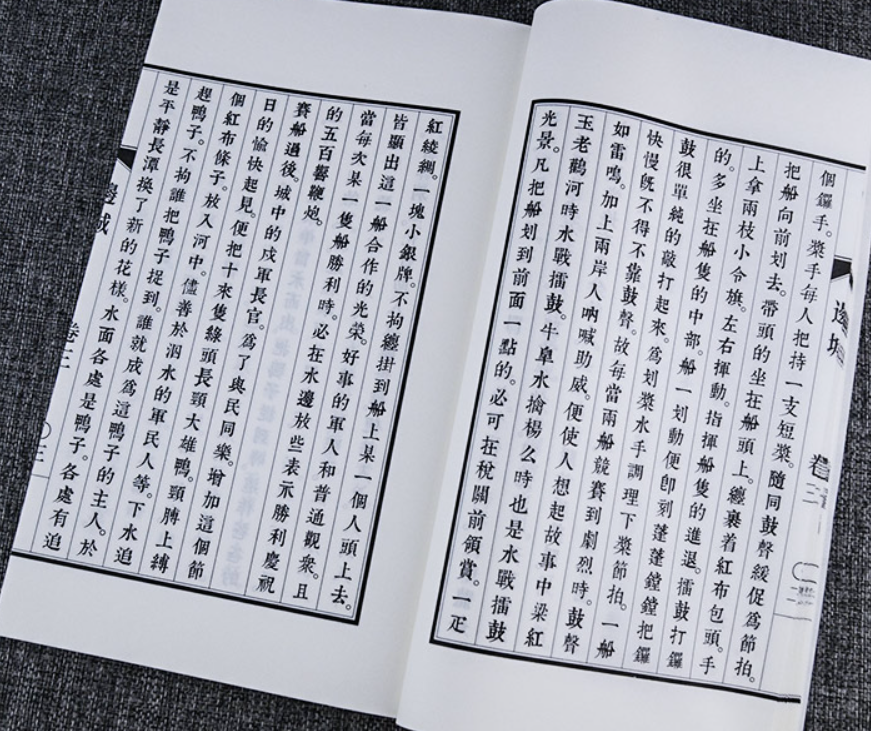 個鑼手。槳手每人把持一支短槳。隨同鼓聲緩促爲節拍。
把船向前划去。帶頭的坐在船頭上。纏裹着紅布包頭。手
上拿兩枝小令旗。左右揮動。指揮船隻的進退。擂鼓打鑼
的。多坐在船隻的中部。船一划動便卽刻蓬蓬鏜鏜把鑼
鼓很單純的敲打起來。爲划槳水手調理下槳節拍。一船
快慢旣不得不靠鼓聲。故每當兩船競賽到劇烈時。鼓聲
如雷鳴。加上兩岸人吶喊助威。便使人想起故事中梁紅
玉老鸛河時水戰擂鼓。牛皐水擒楊么時也是水戰擂鼓
光景。凡把船划到前面一點的。必可在稅關前領賞。一疋
邊城
卷三
二
紅綾綢。一塊小銀牌。不拘纏掛到船上某一個人頭上去。
皆顯出這一船合作的光榮。好事的軍人和普通觀衆。且
當每次某一隻船勝利時。必在水邊放些表示勝利慶祝
的五百響鞭炮。
賽船過後。城中的戍軍長官。爲了與民同樂。增加這個節
日的愉快起見。便把十來隻綠頭長頸大雄鴨。頸膊上縛
個紅布條子。放入河中。儘善於泅水的軍民人等。下水追
趕鴨子。不拘誰把鴨子捉到。誰就成爲這鴨子的主人。於
是平靜長潭換了新的花樣。水面各處是鴨子。各處有追
邊城
卷三
三